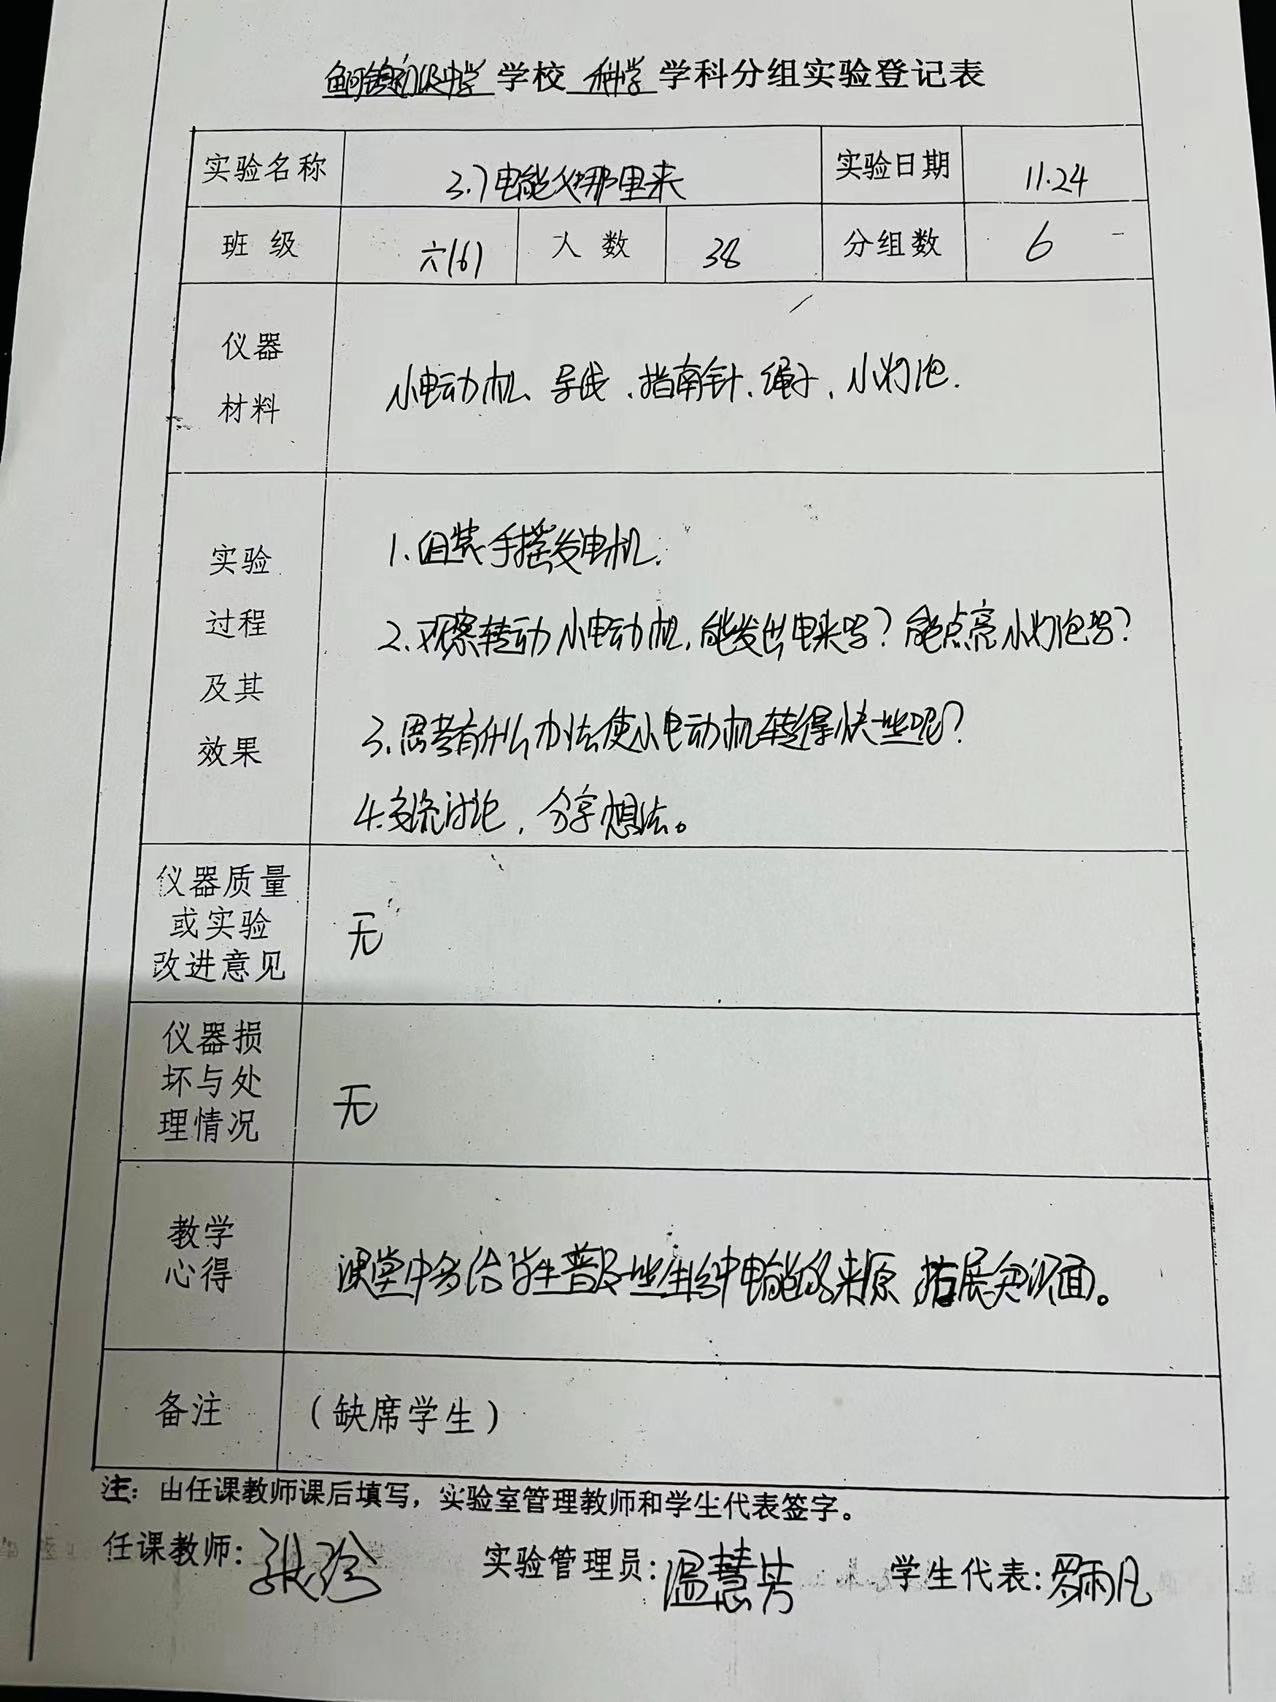 初级中学 学校 科学 学科分组实验登记表
实验名称 3.7电能从哪里来 实验日期 11.24
班 级 六(6) 人 数 38 分组数 6
仪器
材料
小电动机、导线、指南针、绳子、小灯泡.
实验
过程
及其
效果
1.组装手摇发电机.
2.观察转动小电动机,能发出电来吗?能点亮小灯泡吗?
3.思考有什么办法使小电动机转得快些呢?
4.交流讨论,分享想法。
仪器质量
或实验
改进意见
无
仪器损
坏与处
理情况
无
教学
心得
课堂中多给学生普及些生活中电能的来源 拓展知识面。
备注 (缺席学生)
注:由任课教师课后填写,实验室管理教师和学生代表签字。
任课教师: 张 实验管理员:温慧芳 学生代表:罗雨凡